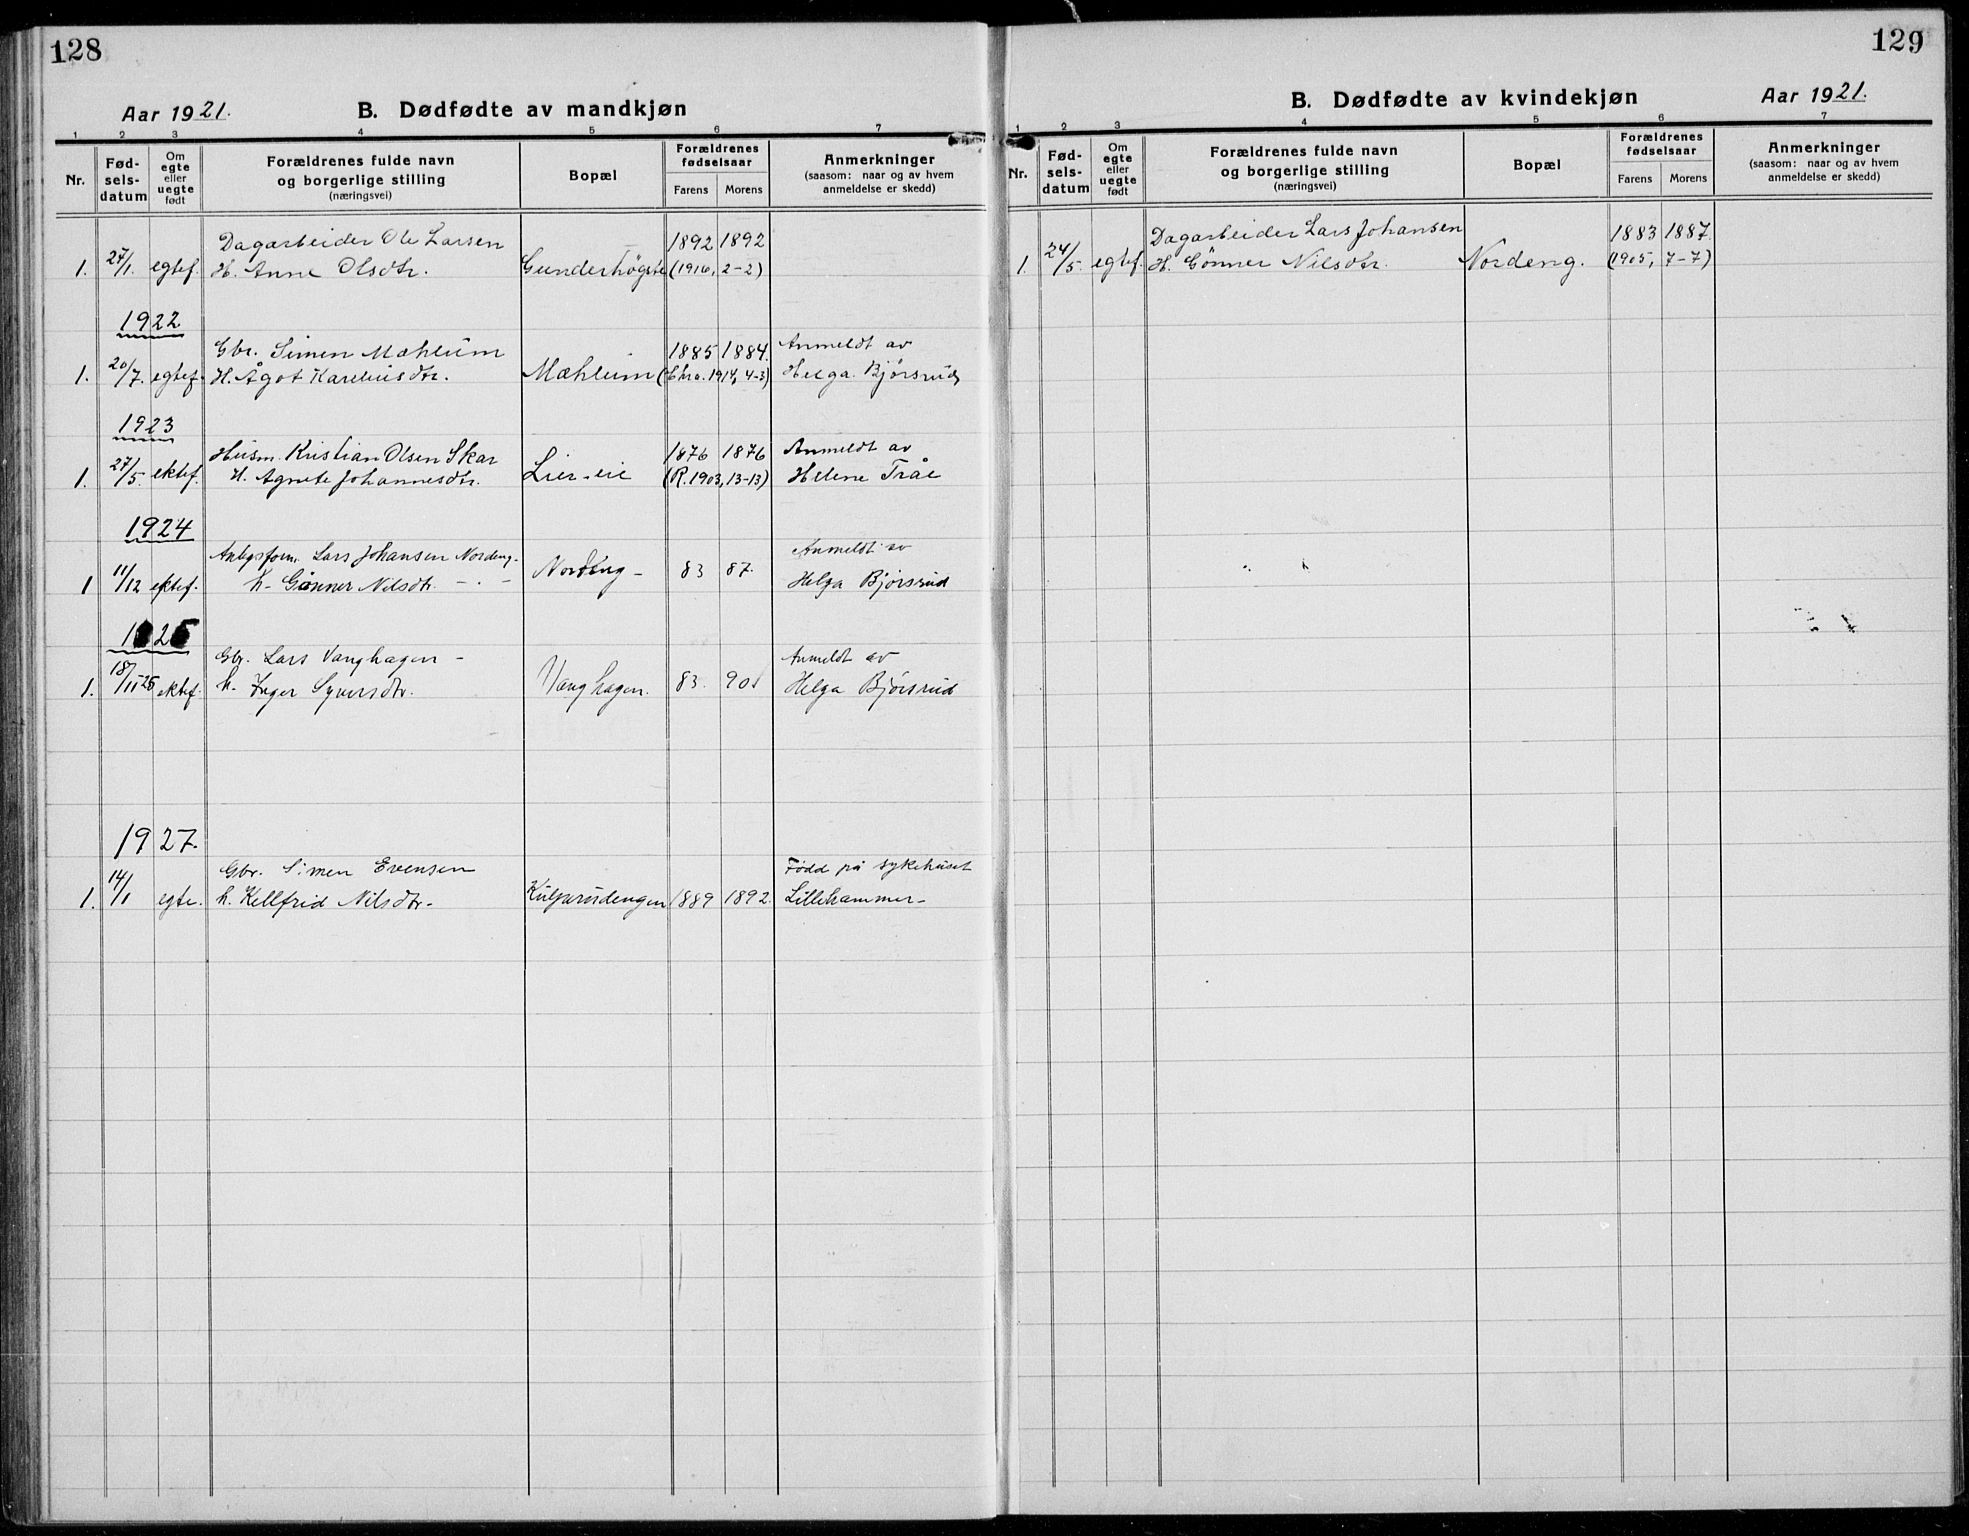 128
Aar 1921. B. Dødfødte av mandkjøn
1 2 3 4 5 6 7
Nr.
Fød-
sels-
datum
Om
egte
eller
uegte
født
Forældrenes fulde navn
og borgerlige stilling
(næringsvei)
Bopæl
Forældrenes
fødselsaar
Farens Morens
Anmerkninger
(saasom: naar og av hvem
anmeldelse er skedd)
Dagarbeider Ole Larsen 1892 1892
1. 27/1. egtef. H. Anne Olsdtr. Gunderhøgste (1916, 2-2)
1922
Gbr. Simen Mæhlum 1885 1884. Anmeldt av
1. 20/7. egtef. H. Ågot Kareliusdtr. Mæhlum (Chra. 1914, 4-3) Helga Bjørsrud
1923
Husm. Kristian Olsen Skar 1876 1876 Anmeldt av
1. 27/5. ektef. H. Agnete Johannesdtr. Lier-eie (R. 1903, 13-13) Helene Tråe
1924
Lars Johansen Nordeng - Anmeldt av
1 11/12 ektef. h. Gønner Nilsdtr. - . - Nordeng - 83 87. Helga Bjørsrud
1925
Gbr. Lars Vanghagen - Anmeldt av
1. 18/11 25 ektef. h. Inger Syversdtr. Vanghagen. 83. 90. Helga Bjørsrud
1927.
Gbr. Simen Evensen Født på sykehuset
1. 14/1 egte. h. Kellfrid Nilsdtr- 1889 1892. Lillehammer-
129
B. Dødfødte av kvindekjøn Aar 1921.
1 2 3 4 5 6 7
Nr.
Fød-
sels-
datum
Om
egte
eller
uegte
født
Forældrenes fulde navn
og borgerlige stilling
(næringsvei)
Bopæl
Forældrenes
fødselsaar
Farens Morens
Anmerkninger
(saasom: naar og av hvem
anmeldelse er skedd)
Dagarbeider Lars Johansen 1883 1887
1. 24/5. egtef. H. Gønner Nilsdtr. Nordeng. (1905, 7-7)